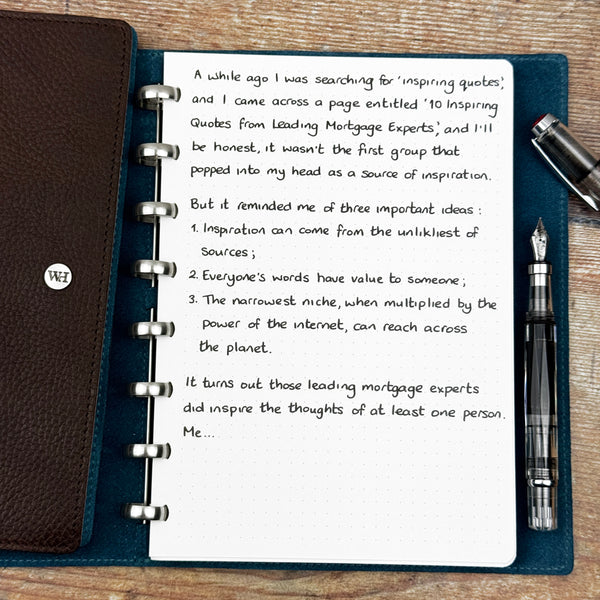 WH
A while ago I was searching for 'inspiring quotes',
and I came across a page entitled '10 Inspiring
Quotes from Leading Mortgage Experts', and I'll
be honest, it wasn't the first group that
popped into my head as a source of inspiration.
But it reminded me of three important ideas :
1. Inspiration can come from the unlikliest of
sources ;
2. Everyone's words have value to someone ;
3. The narrowest niche, when multiplied by the
power of the internet, can reach across
the planet.
It turns out those leading mortgage experts
did inspire the thoughts of at least one person.
Me...